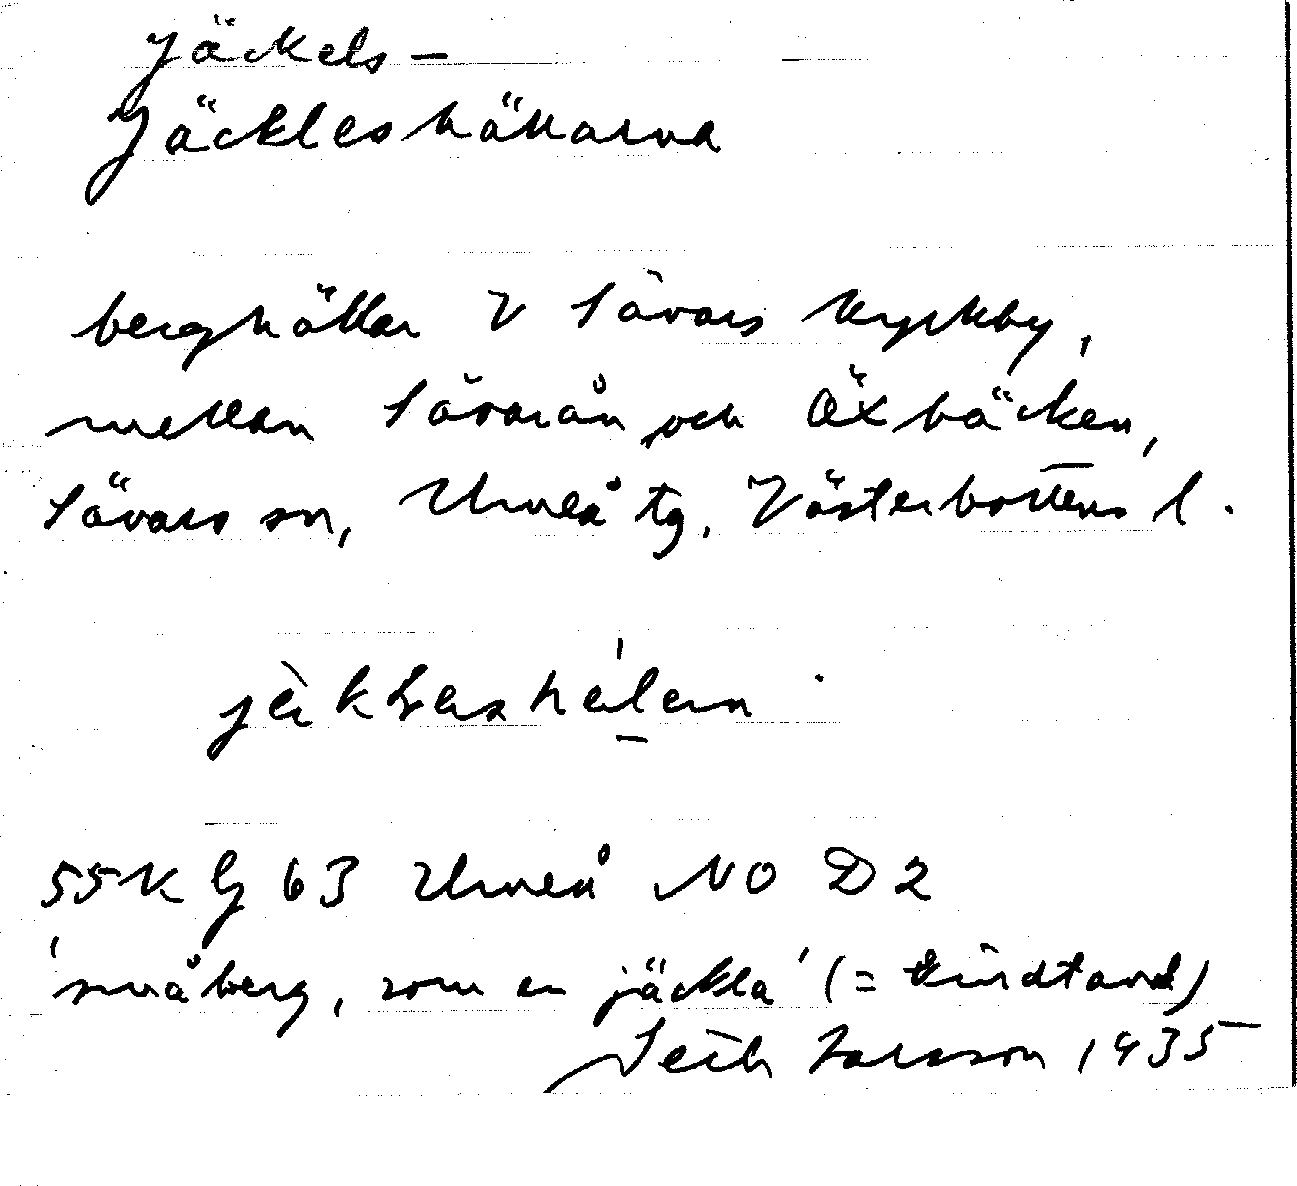 Jäckels-
Jäckleshällarna
berghällar V Sävars kyrkby,
mellan Sävarån och Öxbäcken,
Sävars sn, Umeå tg, Västerbottens l.
55K Gj 63 Umeå NO D2
'småberg, som en jäckla' (= kindtand)
Seth Larsson 1935